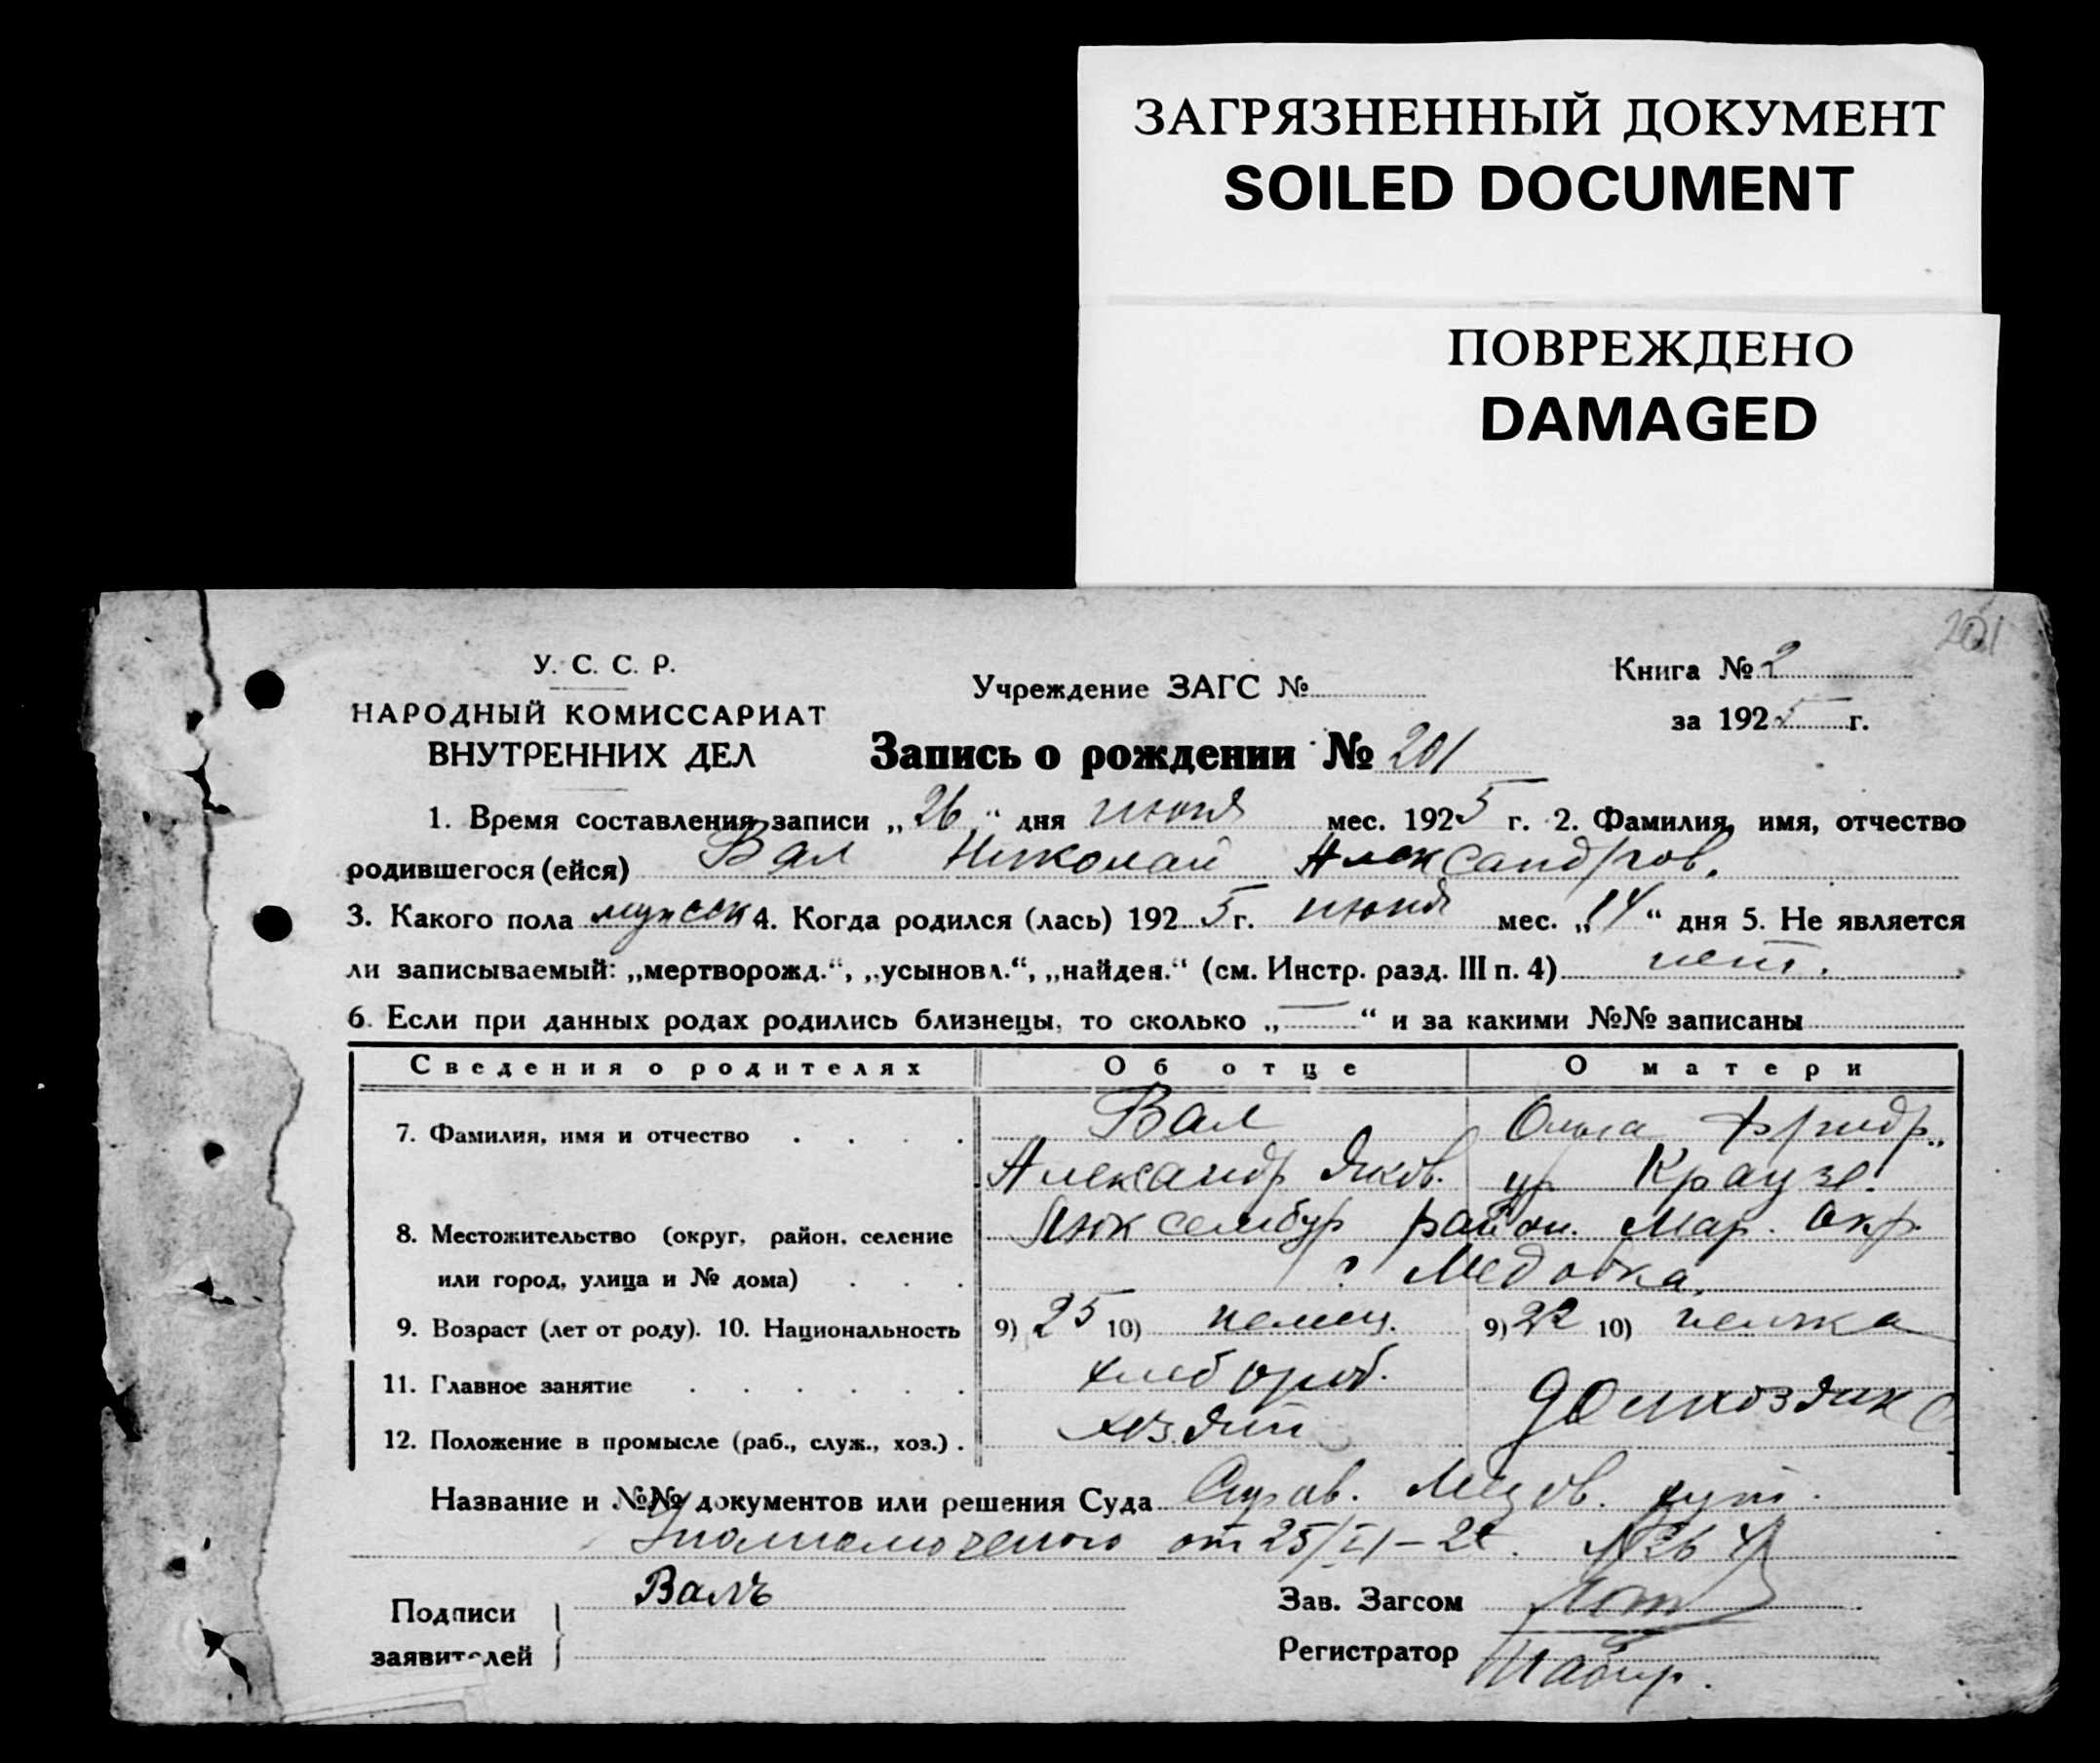 ЗАГРЯЗНЕННЫЙ ДОКУМЕНТ
SOILED DOCUMENT
ПОВРЕЖДЕНО
DAMAGED
201
У. С. С. Р.
НАРОДНЫЙ КОМИССАРИАТ
ВНУТРЕННИХ ДЕЛ
Учреждение ЗАГС №
Книга № 2
за 1925 г.
Запись о рождении № 201
1. Время составления записи „26“ дня июня мес. 1925 г. 2. Фамилия, имя, отчество
родившегося (ейся) Вал Николай Александров.
3. Какого пола мужск 4. Когда родился (лась) 1925 г. июня мес. „14“ дня 5. Не является
ли записываемый: „мертворожд.“, „усыновл.“, „найден.“ (см. Инстр. разд. III п. 4) нет.
6. Если при данных родах родились близнецы, то сколько „—“ и за какими №№ записаны
Сведения о родителях Об отце О матери
7. Фамилия, имя и отчество Вал Ольга Фридр.
Александр Яков. ур Краузе.
8. Местожительство (округ, район, селение Люксембур район. Мар. Окр.
или город, улица и № дома) Медовка
9. Возраст (лет от роду). 10. Национальность 9) 25 10) немец. 9) 22 10) немка
11. Главное занятие хлебороб. домхозяйка
12. Положение в промысле (раб., служ., хоз.) хозяин
Название и №№ документов или решения Суда Справ. Медов. хут.
Уполномоченого от 25/VI-25. №
Подписи Валъ Зав. Загсом
заявителей Регистратор